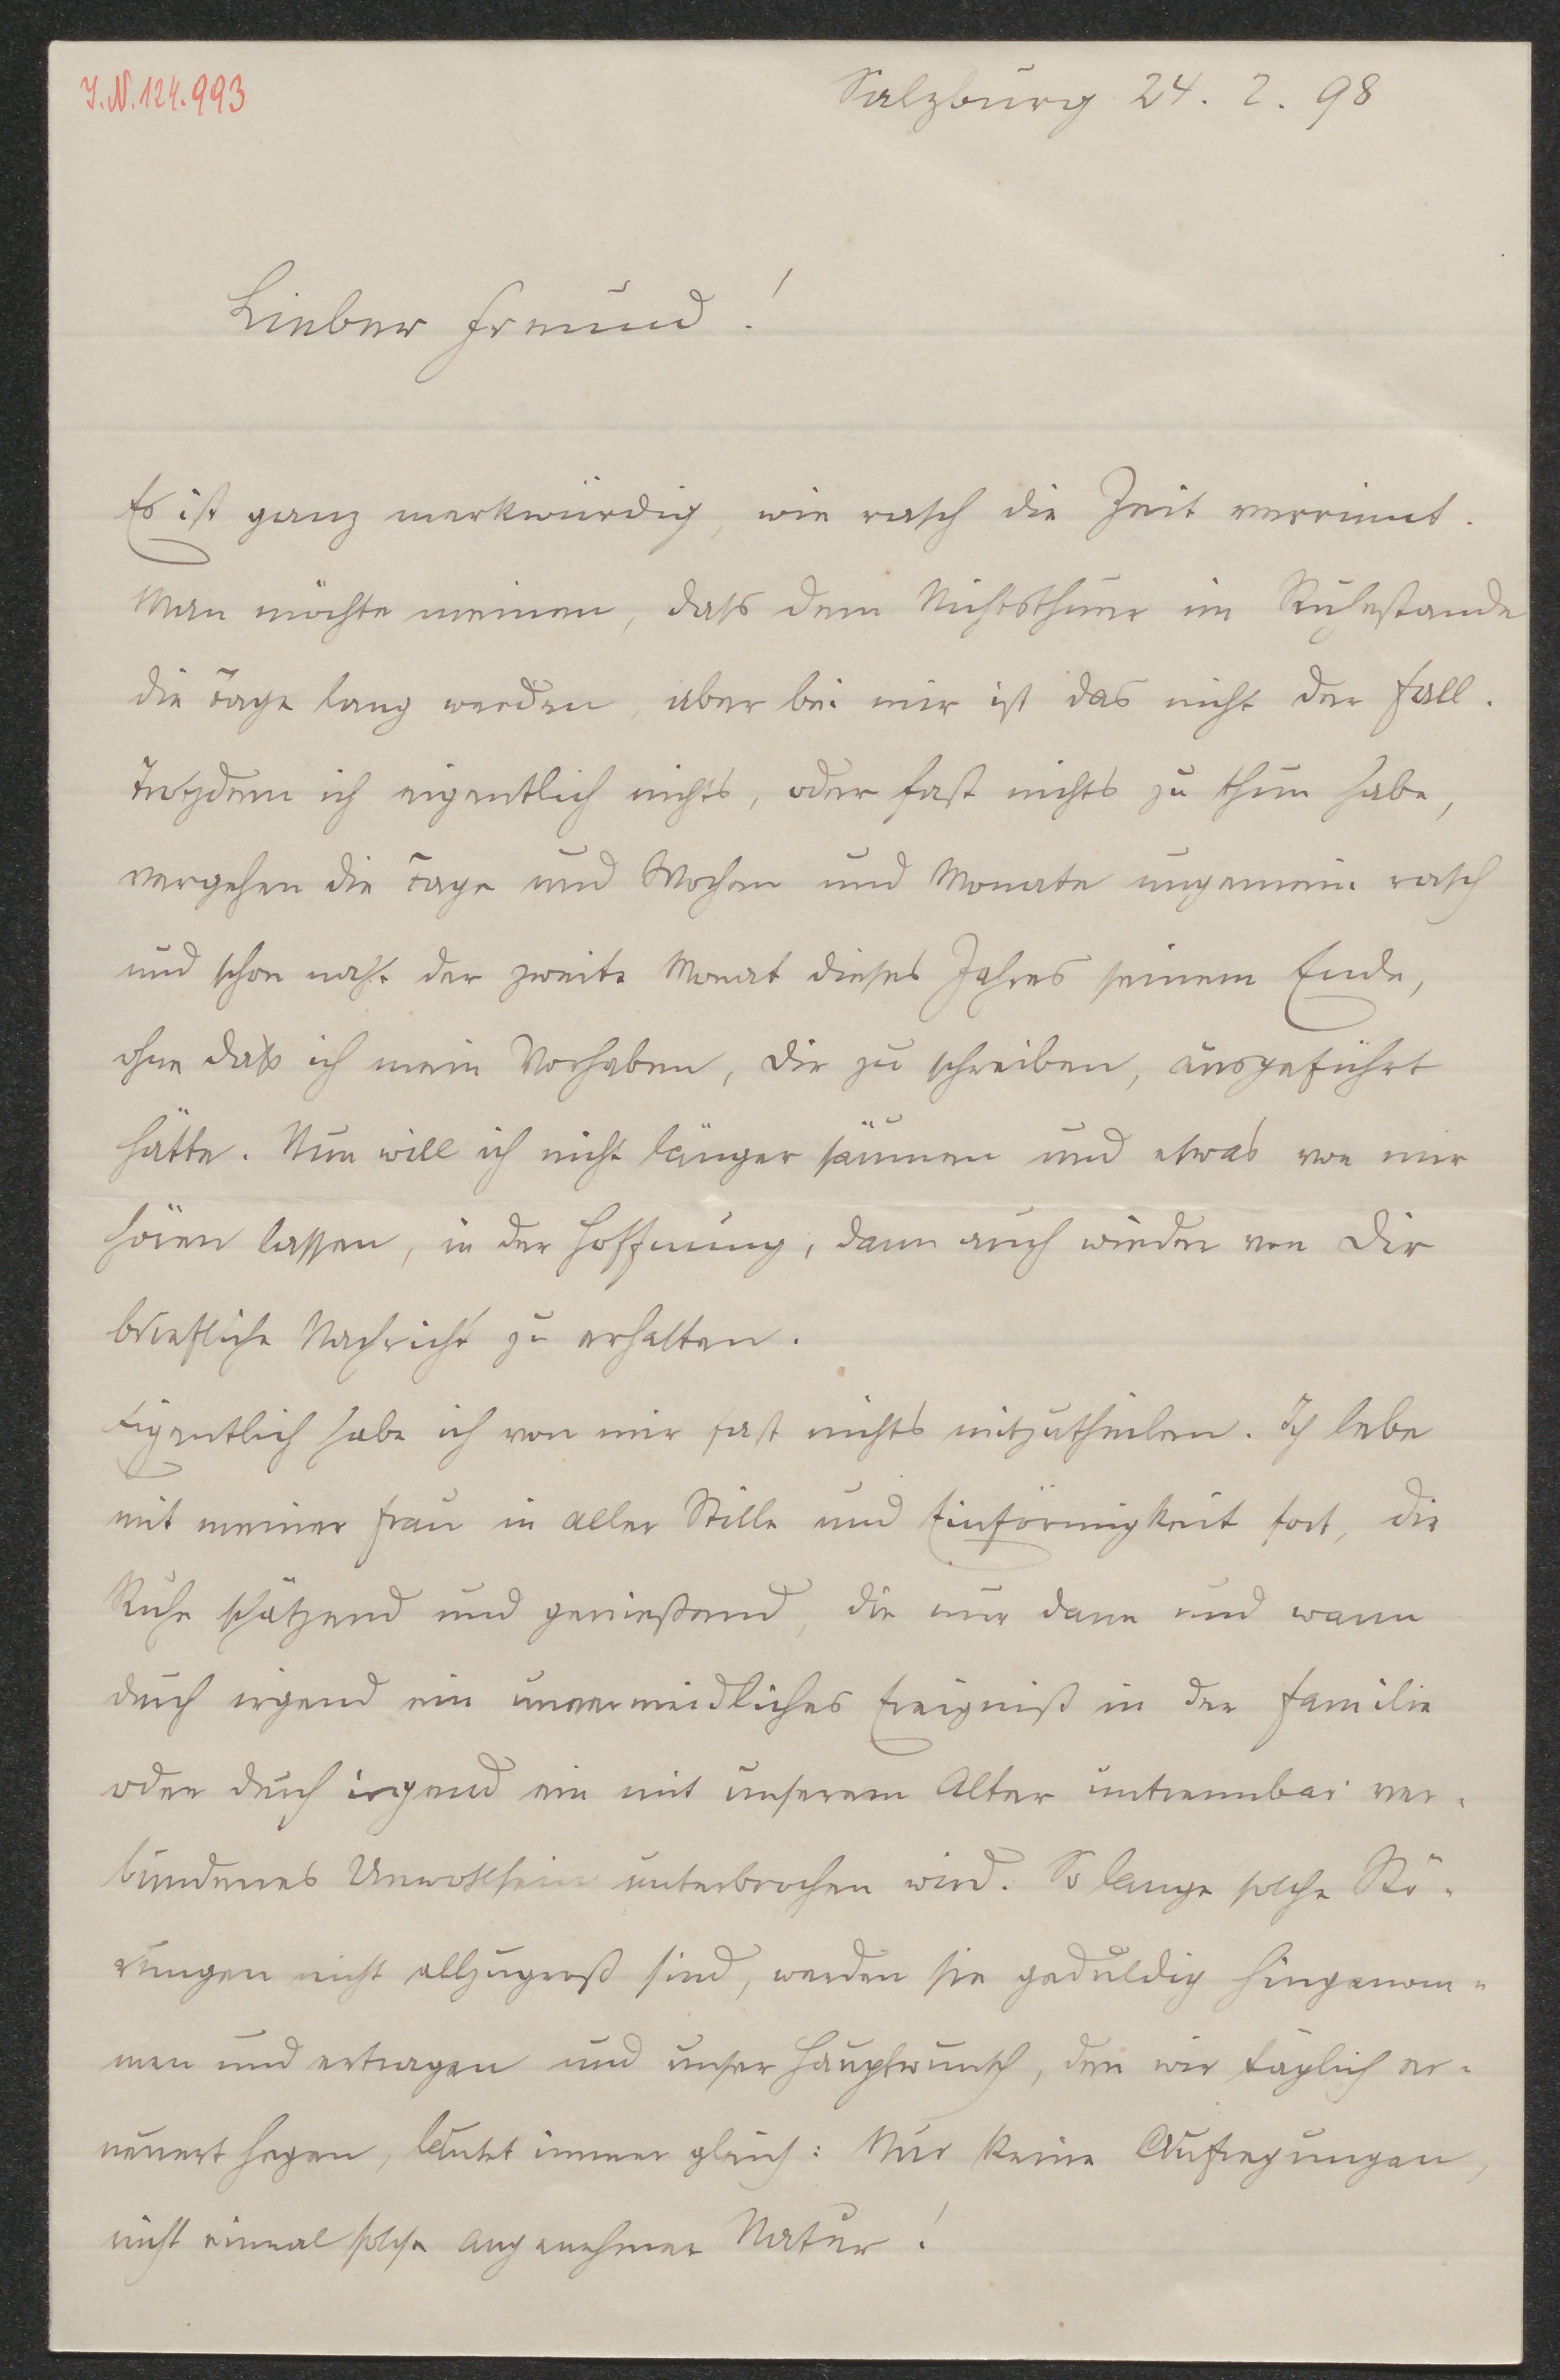 J.N.124.993
Salzburg 24. 2. 98
Lieber Freund!
Es ist ganz merkwürdig, wie rasch die Zeit verrinnt.
Man möchte meinen, dass dem Nichtsthuer im Ruhestande
die Tage lang werden, aber bei mir ist das nicht der Fall.
Trotzdem ich eigentlich nichts, oder fast nichts zu thun habe,
vergehen die Tage und Wochen und Monate ungemein rasch
und schon naht der zweite Monat dieses Jahres seinem Ende,
ohne dass ich mein Vorhaben, Dir zu schreiben, ausgeführt
hätte. Nun will ich nicht länger säumen und etwas von mir
hören lassen, in der Hoffnung, dann auch wieder von Dir
briefliche Nachricht zu erhalten.
Eigentlich habe ich von mir fast nichts mitzutheilen. Ich lebe
mit meiner Frau in aller Stille und Einförmigkeit fort, die
Ruhe schätzend und genießend, die nur dann und wann
durch irgend ein unvermeidliches Ereigniß in der Familie
oder durch irgend ein mit unserem Alter untrennbar ver-
bundenes Unwohlsein unterbrochen wird. So lange solche Stö-
rungen nicht allzugroß sind, werden sie geduldig hingenom-
men und ertragen und unser Hauptwunsch, den wir täglich er-
neuert hegen, lautet immer gleich: Nur keine Aufregungen,
nicht einmal solche angenehmer Natur!